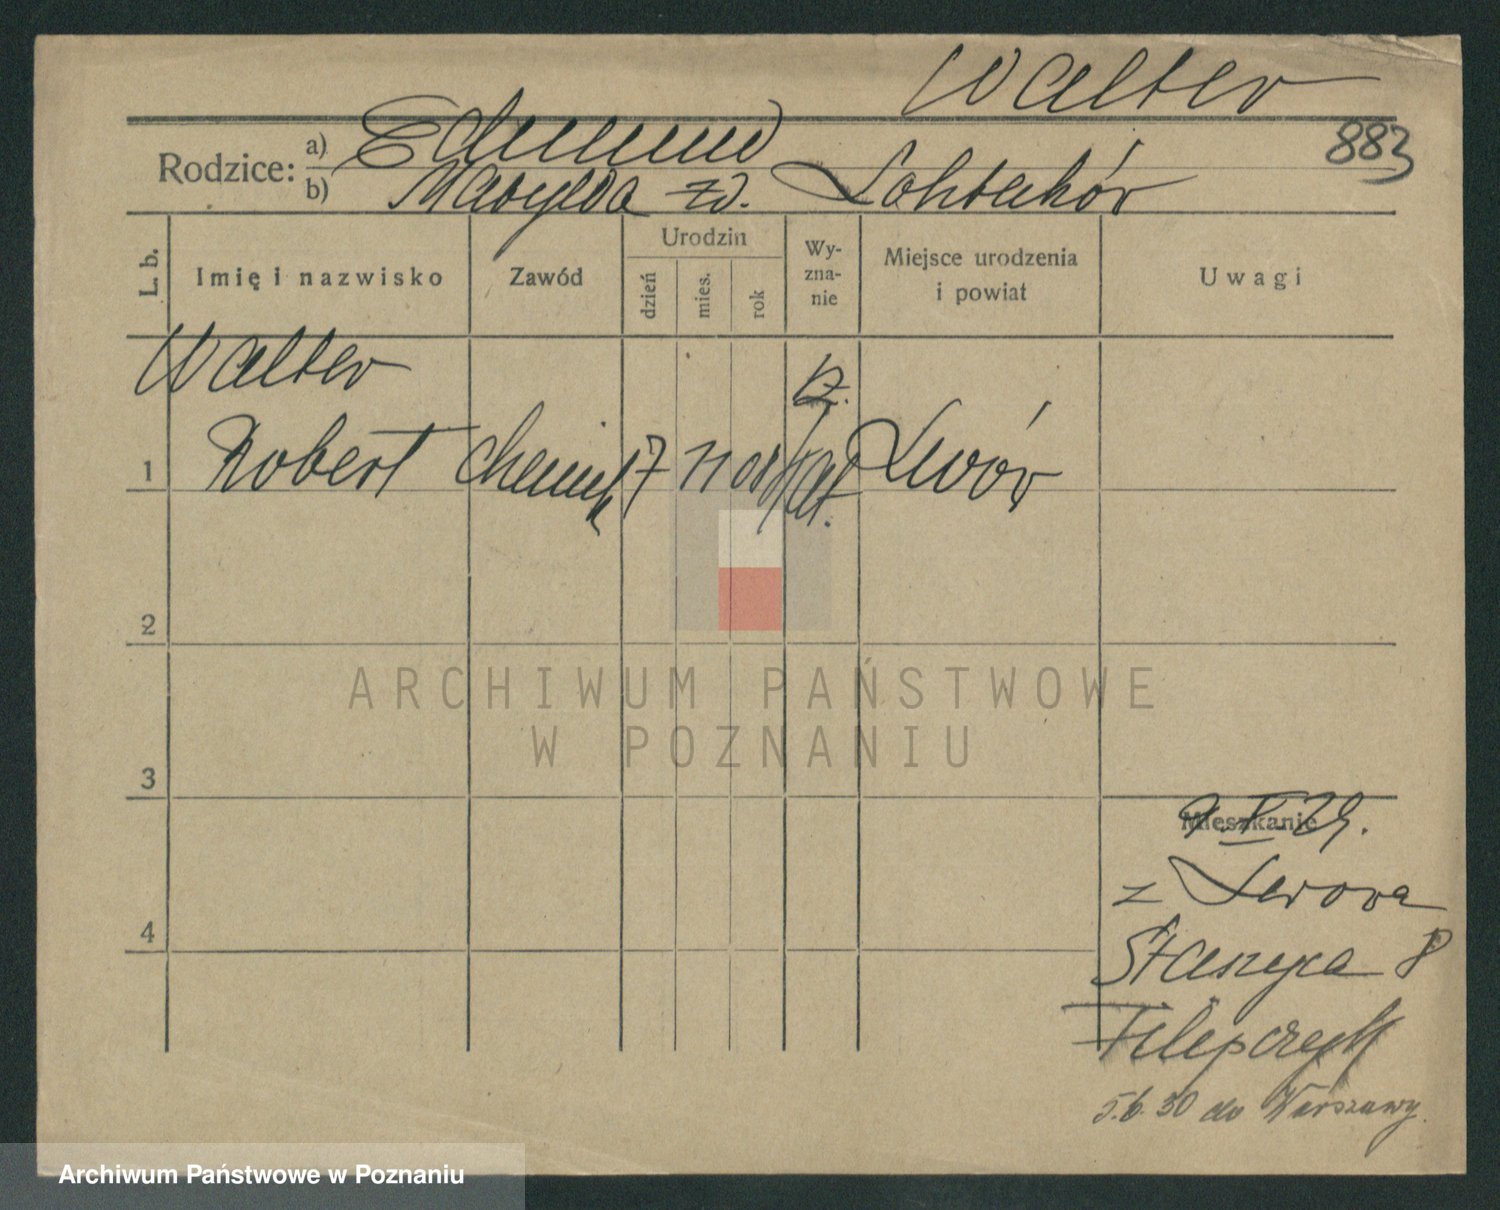 Walter
883
Rodzice: a) Edmund
b) Matylda zd.
L. b.
Imię i nazwisko
Zawód
Urodzin
dzień
mies.
rok
Wy-
zna-
nie
Miejsce urodzenia
i powiat
Uwagi
Walter
1 Robert chemik 17 11 08 kat. Lwów
2
3
4
Mieszkanie
V. 29.
z Lwowa
Staszyca 8
Filipczyk
5.6.30 do Warszawy.
ARCHIWUM PAŃSTWOWE
W POZNANIU
Archiwum Państwowe w Poznaniu